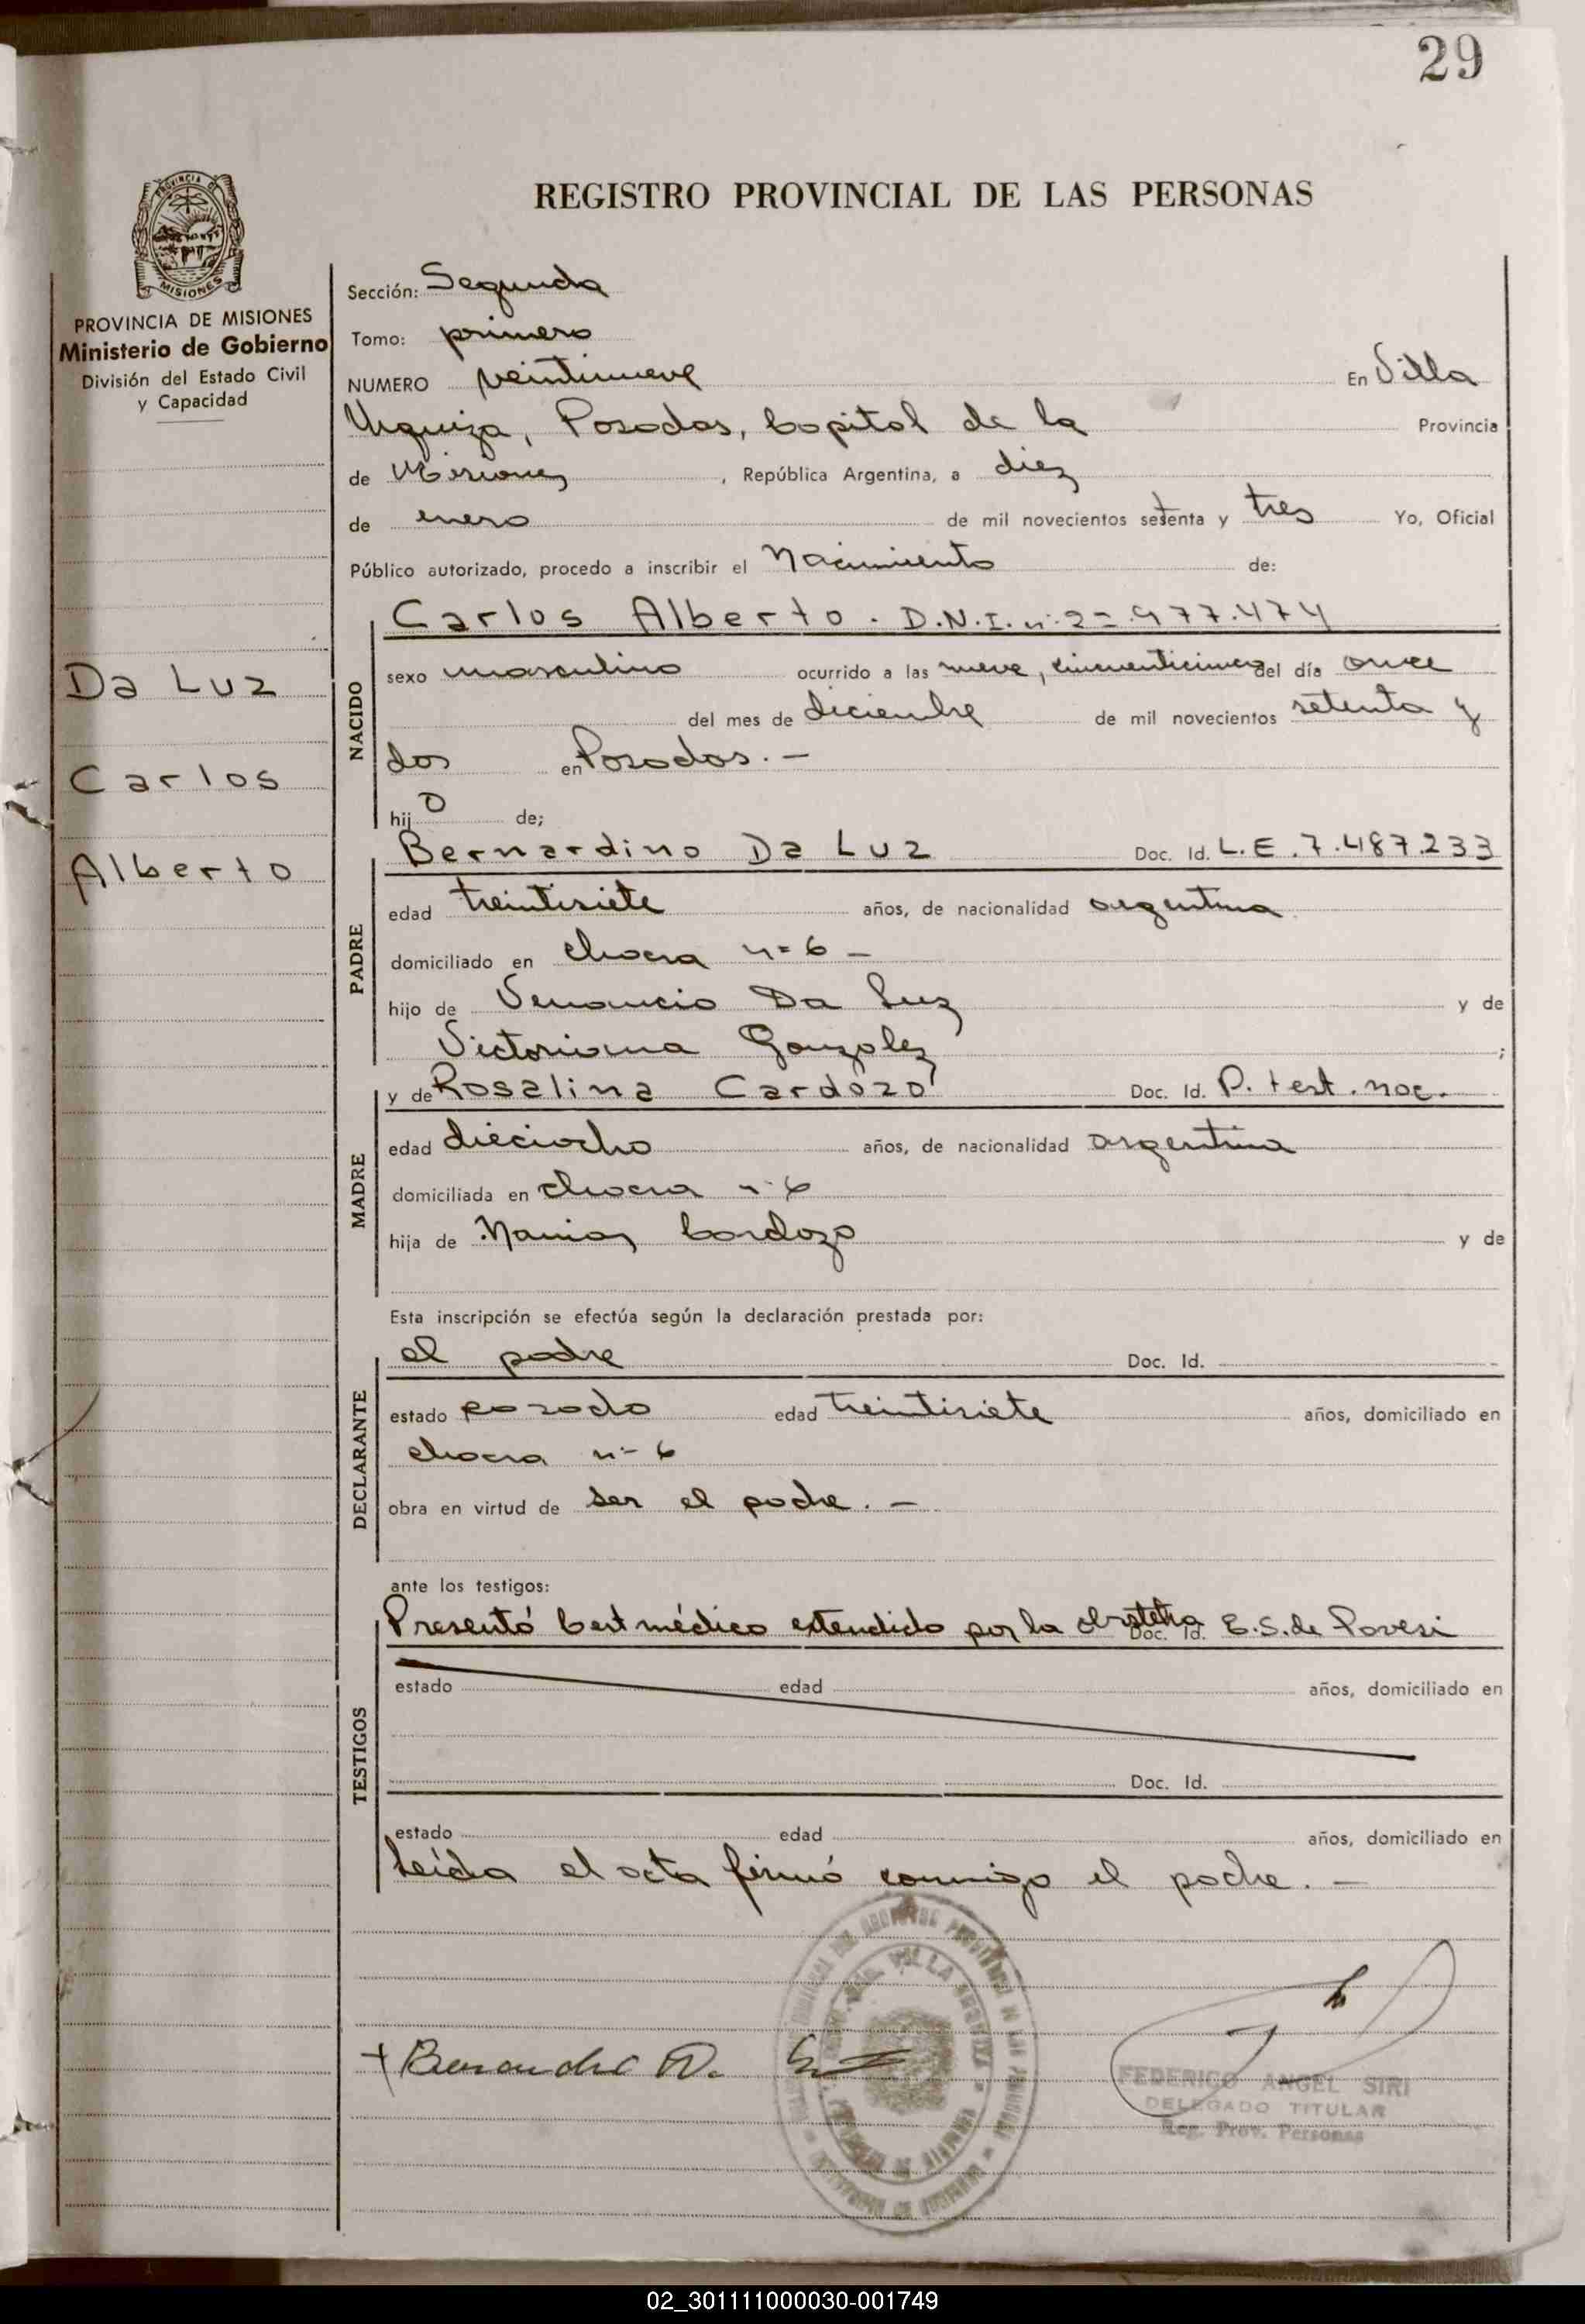 29
REGISTRO PROVINCIAL DE LAS PERSONAS
PROVINCIA DE MISIONES
Ministerio de Gobierno
División del Estado Civil
y Capacidad
Da Luz
Carlos
Alberto
Sección: Segunda
Tomo: primero
NUMERO veintinueve En Villa
Urquiza, Posadas, Capital de la Provincia
de Misiones, República Argentina, a diez
de enero de mil novecientos setenta y tres Yo, Oficial
Público autorizado, procedo a inscribir el Nacimiento de:
NACIDO
Carlos Alberto. D.N.I. nº
sexo masculino ocurrido a las nueve, cincuenticinco del día once
del mes de diciembre de mil novecientos setenta y
dos en Posadas. -
hijo de;
PADRE
Bernardino Da Luz Doc. Id. L.E. 7.487.233
edad treintisiete años, de nacionalidad argentina
domiciliado en chacra nº 6 -
hijo de Venancio Da Luz y de
Victoriana Gonzalez ;
MADRE
y de Rosalina Cardozo Doc. Id. P. test. noc.
edad dieciocho años, de nacionalidad argentina
domiciliada en chacra nº 6
hija de Cardozo y de
Esta inscripción se efectúa según la declaración prestada por:
DECLARANTE
el padre Doc. Id.
estado casado edad treintisiete años, domiciliado en
chacra nº 6
obra en virtud de ser el padre. -
ante los testigos:
TESTIGOS
Presentó Cert médico extendido por la obstetra Doc. Id. E.S. de Povesi
estado edad años, domiciliado en
Doc. Id.
estado edad años, domiciliado en
Leída el acta firmó conmigo el padre. -
FEDERICO ANGEL SIRI
DELEGADO TITULAR
Reg. Prov. Personas
02_301111000030-001749